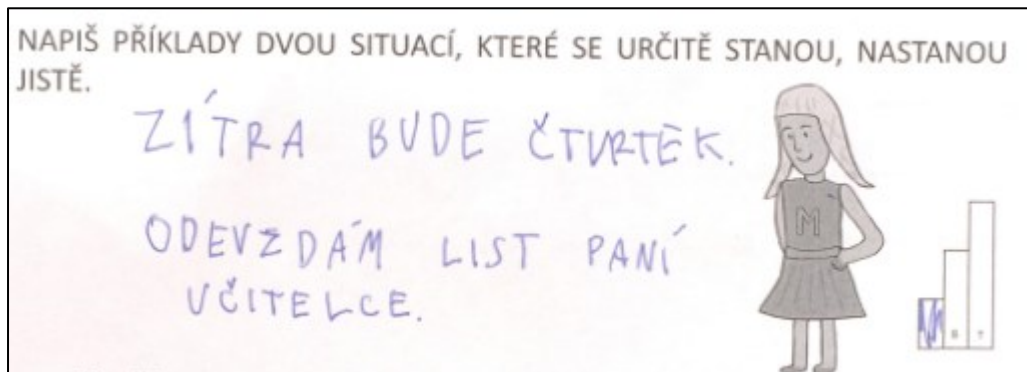 NAPIŠ PŘÍKLADY DVOU SITUACÍ, KTERÉ SE URČITĚ STANOU, NASTANOU
JISTĚ.
ZÍTRA BUDE ČTVRTĚK.
ODEVZDÁM LIST PANÍ
UČITELCE.
M
B T